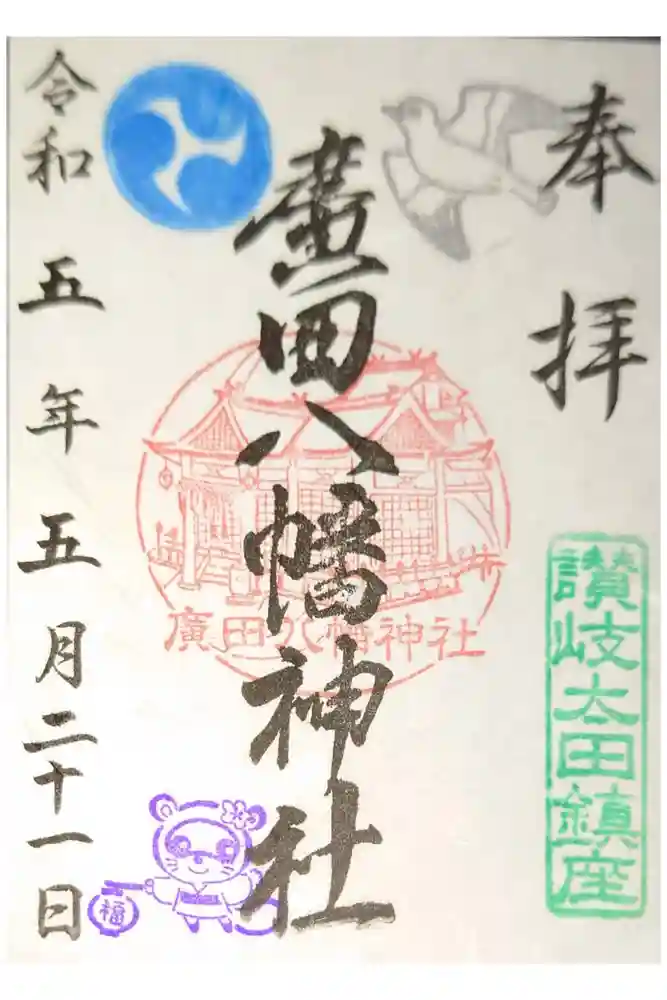 奉拝
讃岐太田鎮座
廣田八幡神社
廣田八幡神社
福
令和五年五月二十一日